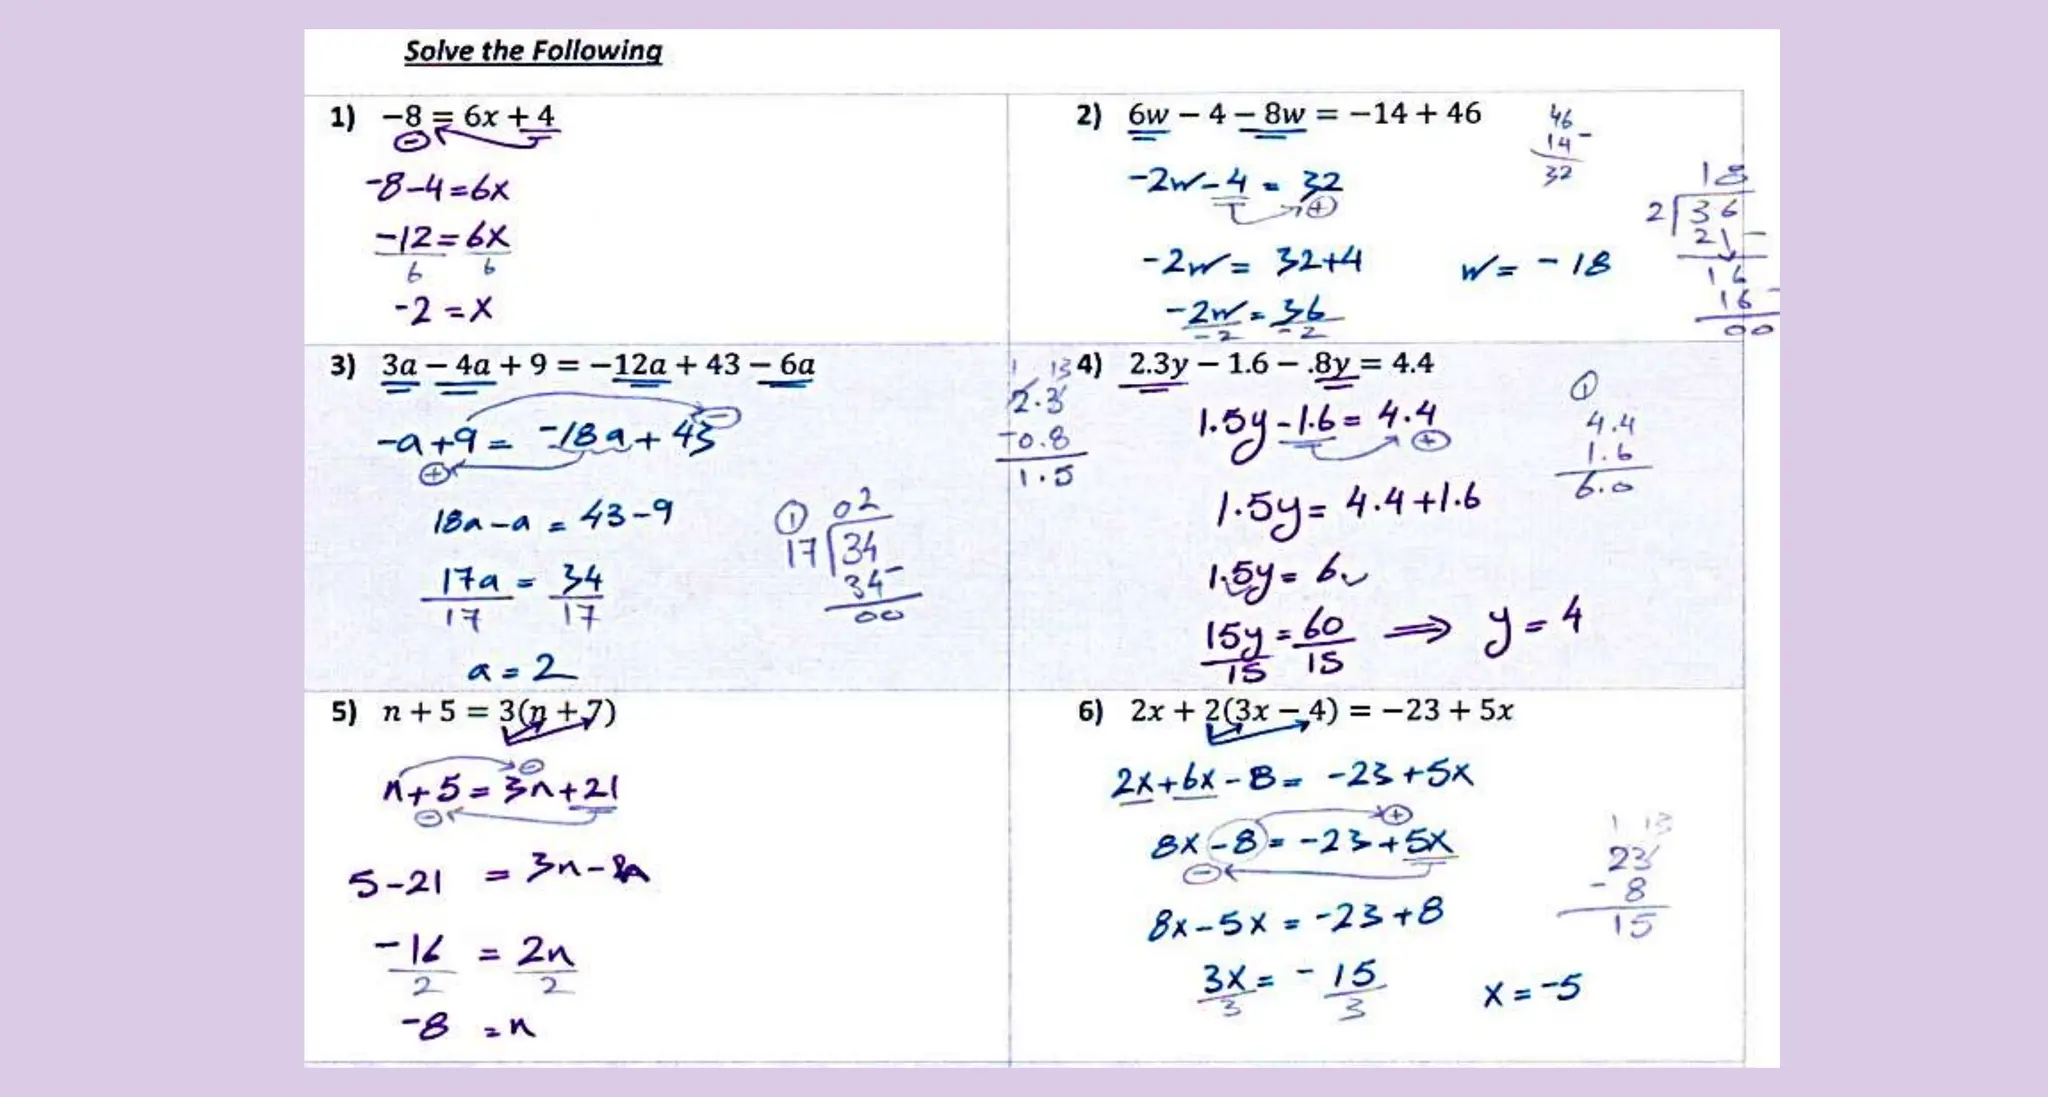 Solve the Following
1) −8 = 6x + 4
-8-4=6x
-12=6x
6 6
-2=x
2) 6w − 4 − 8w = −14 + 46
-2w-4=32
-2w=32+4
-2w=36
-2 -2
w=-18
46
14 -
32
18
2 36
2 -
16
16 -
00
3) 3a − 4a + 9 = −12a + 43 − 6a
-a+9=-18a+43
18a-a=43-9
17a=34
17 17
a=2
1 02
17 34
34 -
00
4) 2.3y − 1.6 − .8y = 4.4
1 13
2.3
-0.8
1.5
1.5y-1.6=4.4
1.5y=4.4+1.6
1.5y=6
15y=60 ⇒ y=4
15 15
1
4.4
1.6
6.0
5) n + 5 = 3(n + 7)
n+5=3n+21
5-21=3n-n
-16=2n
2 2
-8=n
6) 2x + 2(3x − 4) = −23 + 5x
2x+6x-8=-23+5x
8x-8=-23+5x
8x-5x=-23+8
3x=-15
3 3
x=-5
1 13
23
- 8
15